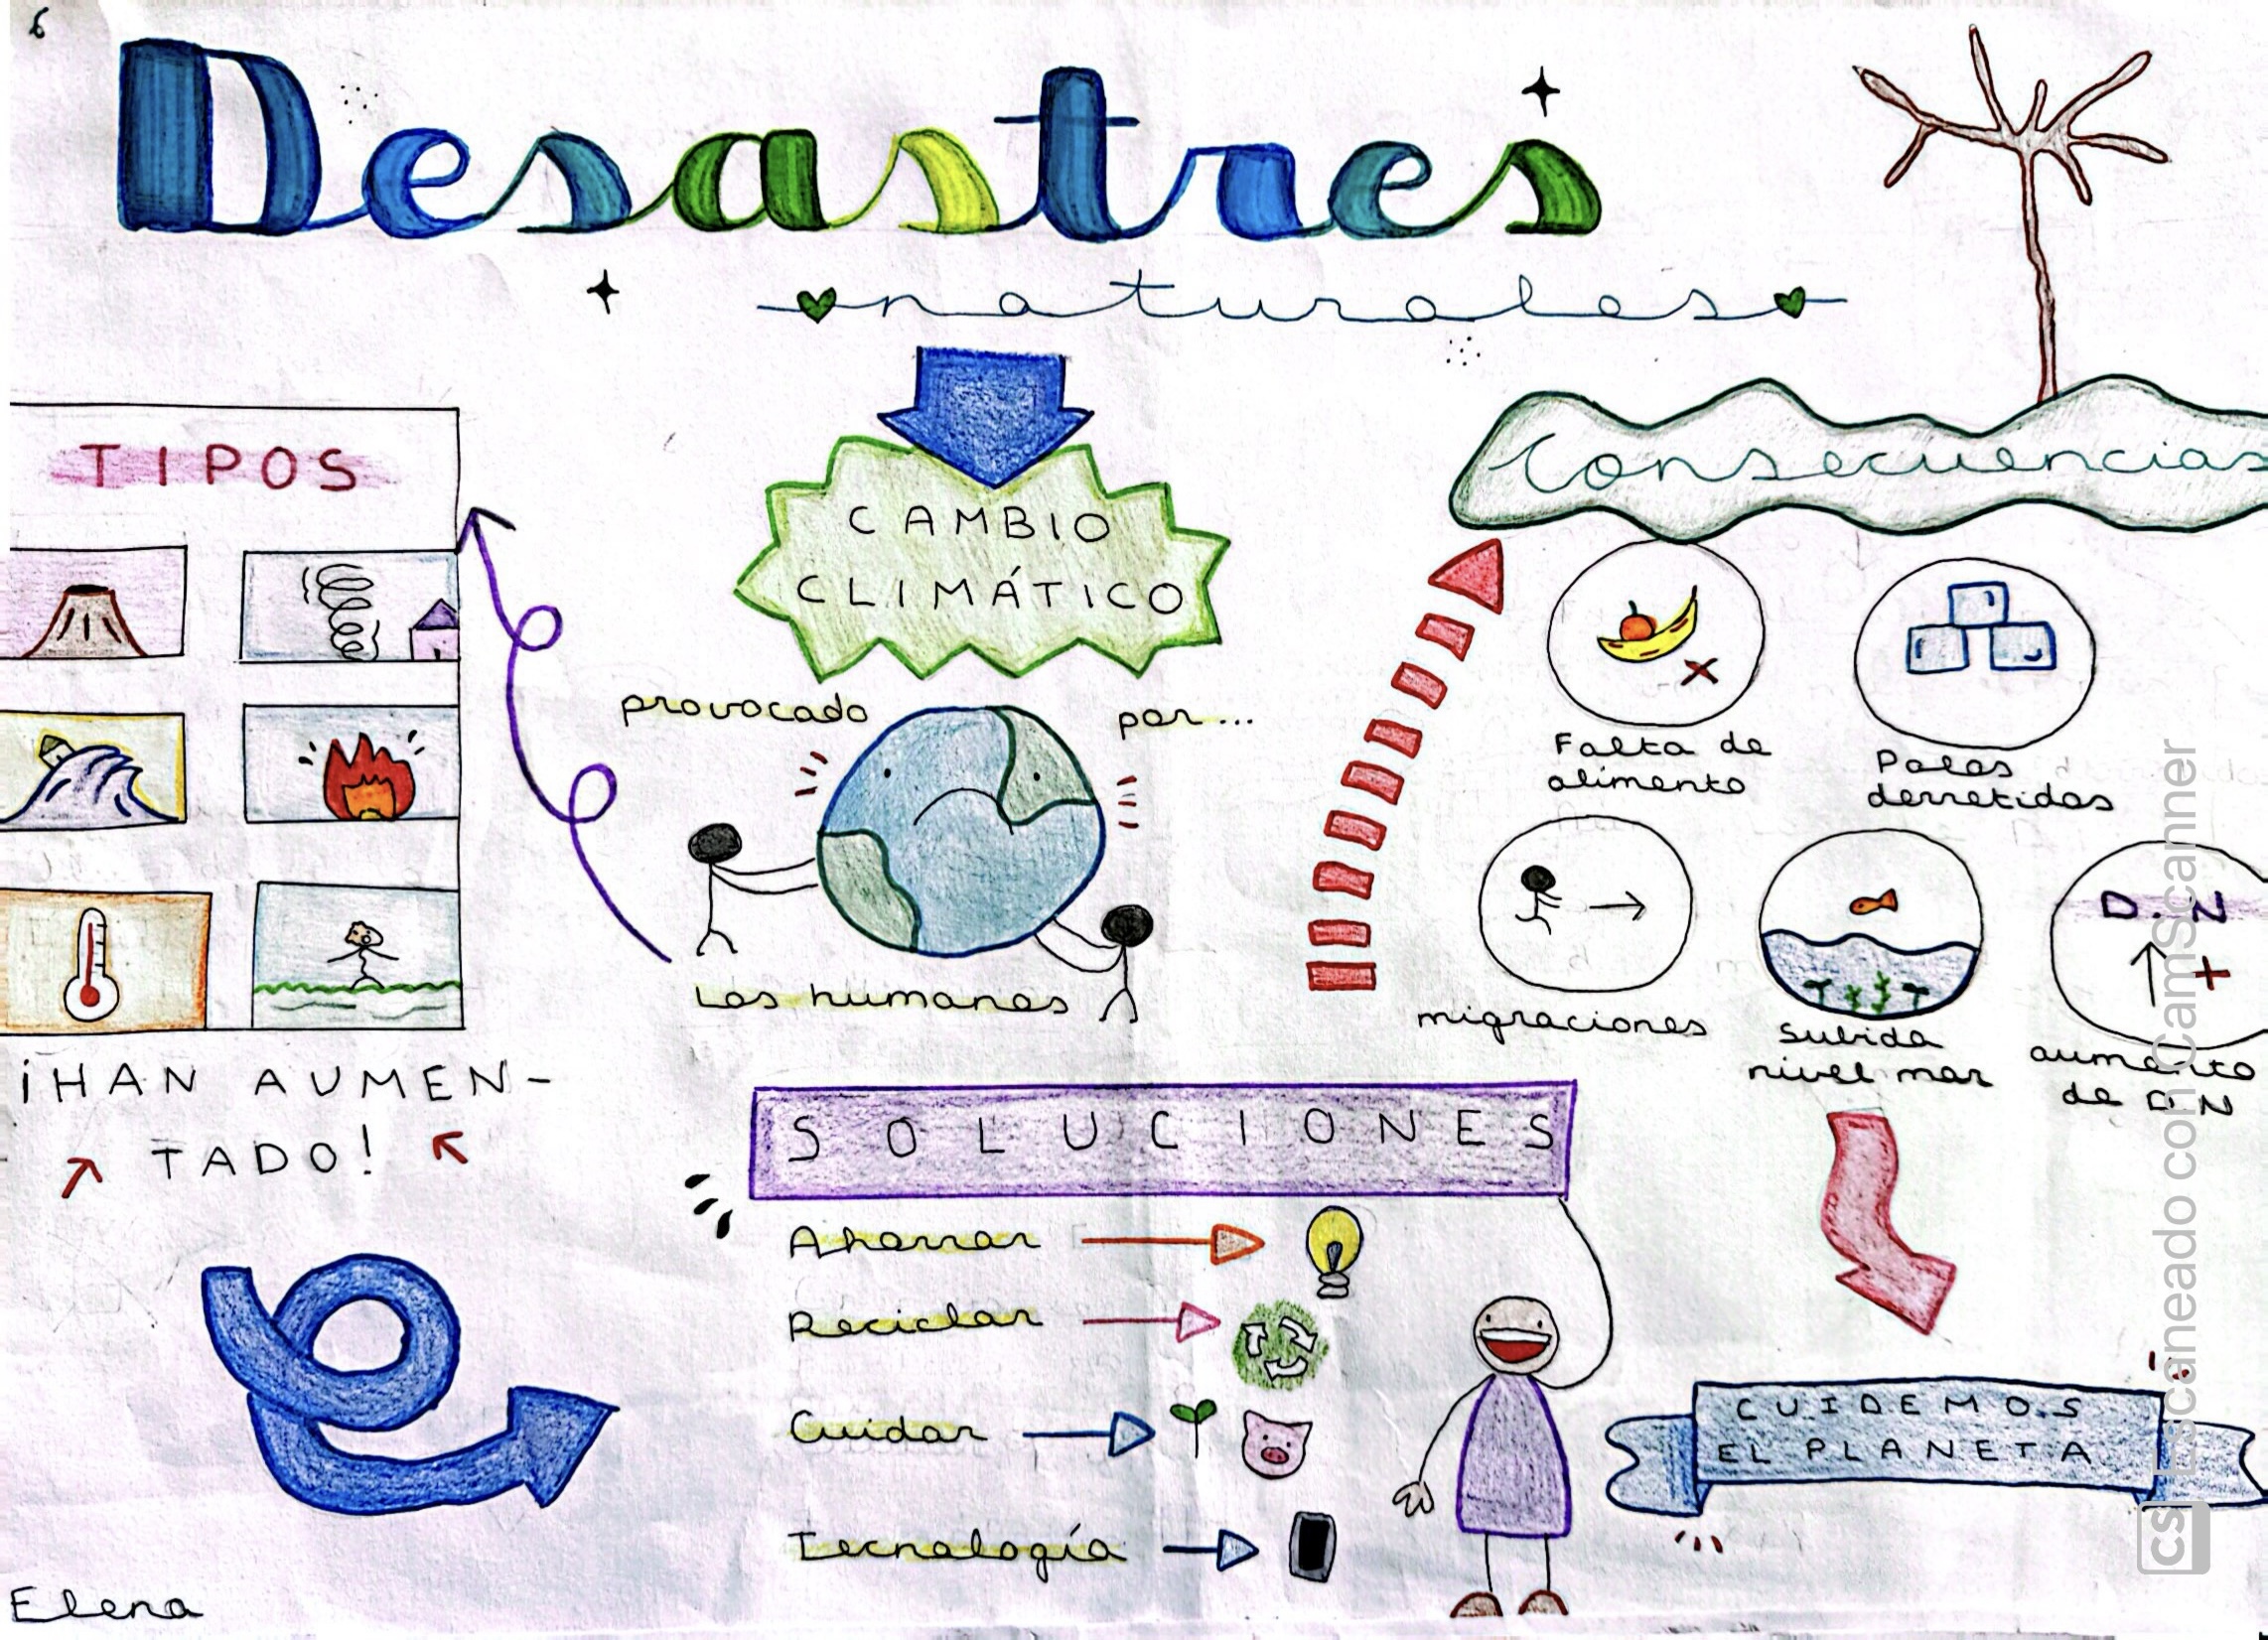 6
Desastres
naturales
TIPOS
¡HAN AUMEN-
TADO!
CAMBIO
CLIMÁTICO
provocado por...
Los humanos
Consecuencias
Falta de
alimento
Polos
derretidos
migraciones
Subida
nivel mar
D. N
+
aumento
de D.N
SOLUCIONES
Ahorrar
Reciclar
Cuidar
Tecnología
CUIDEMOS
EL PLANETA
Elena
CS Escaneado con CamScanner